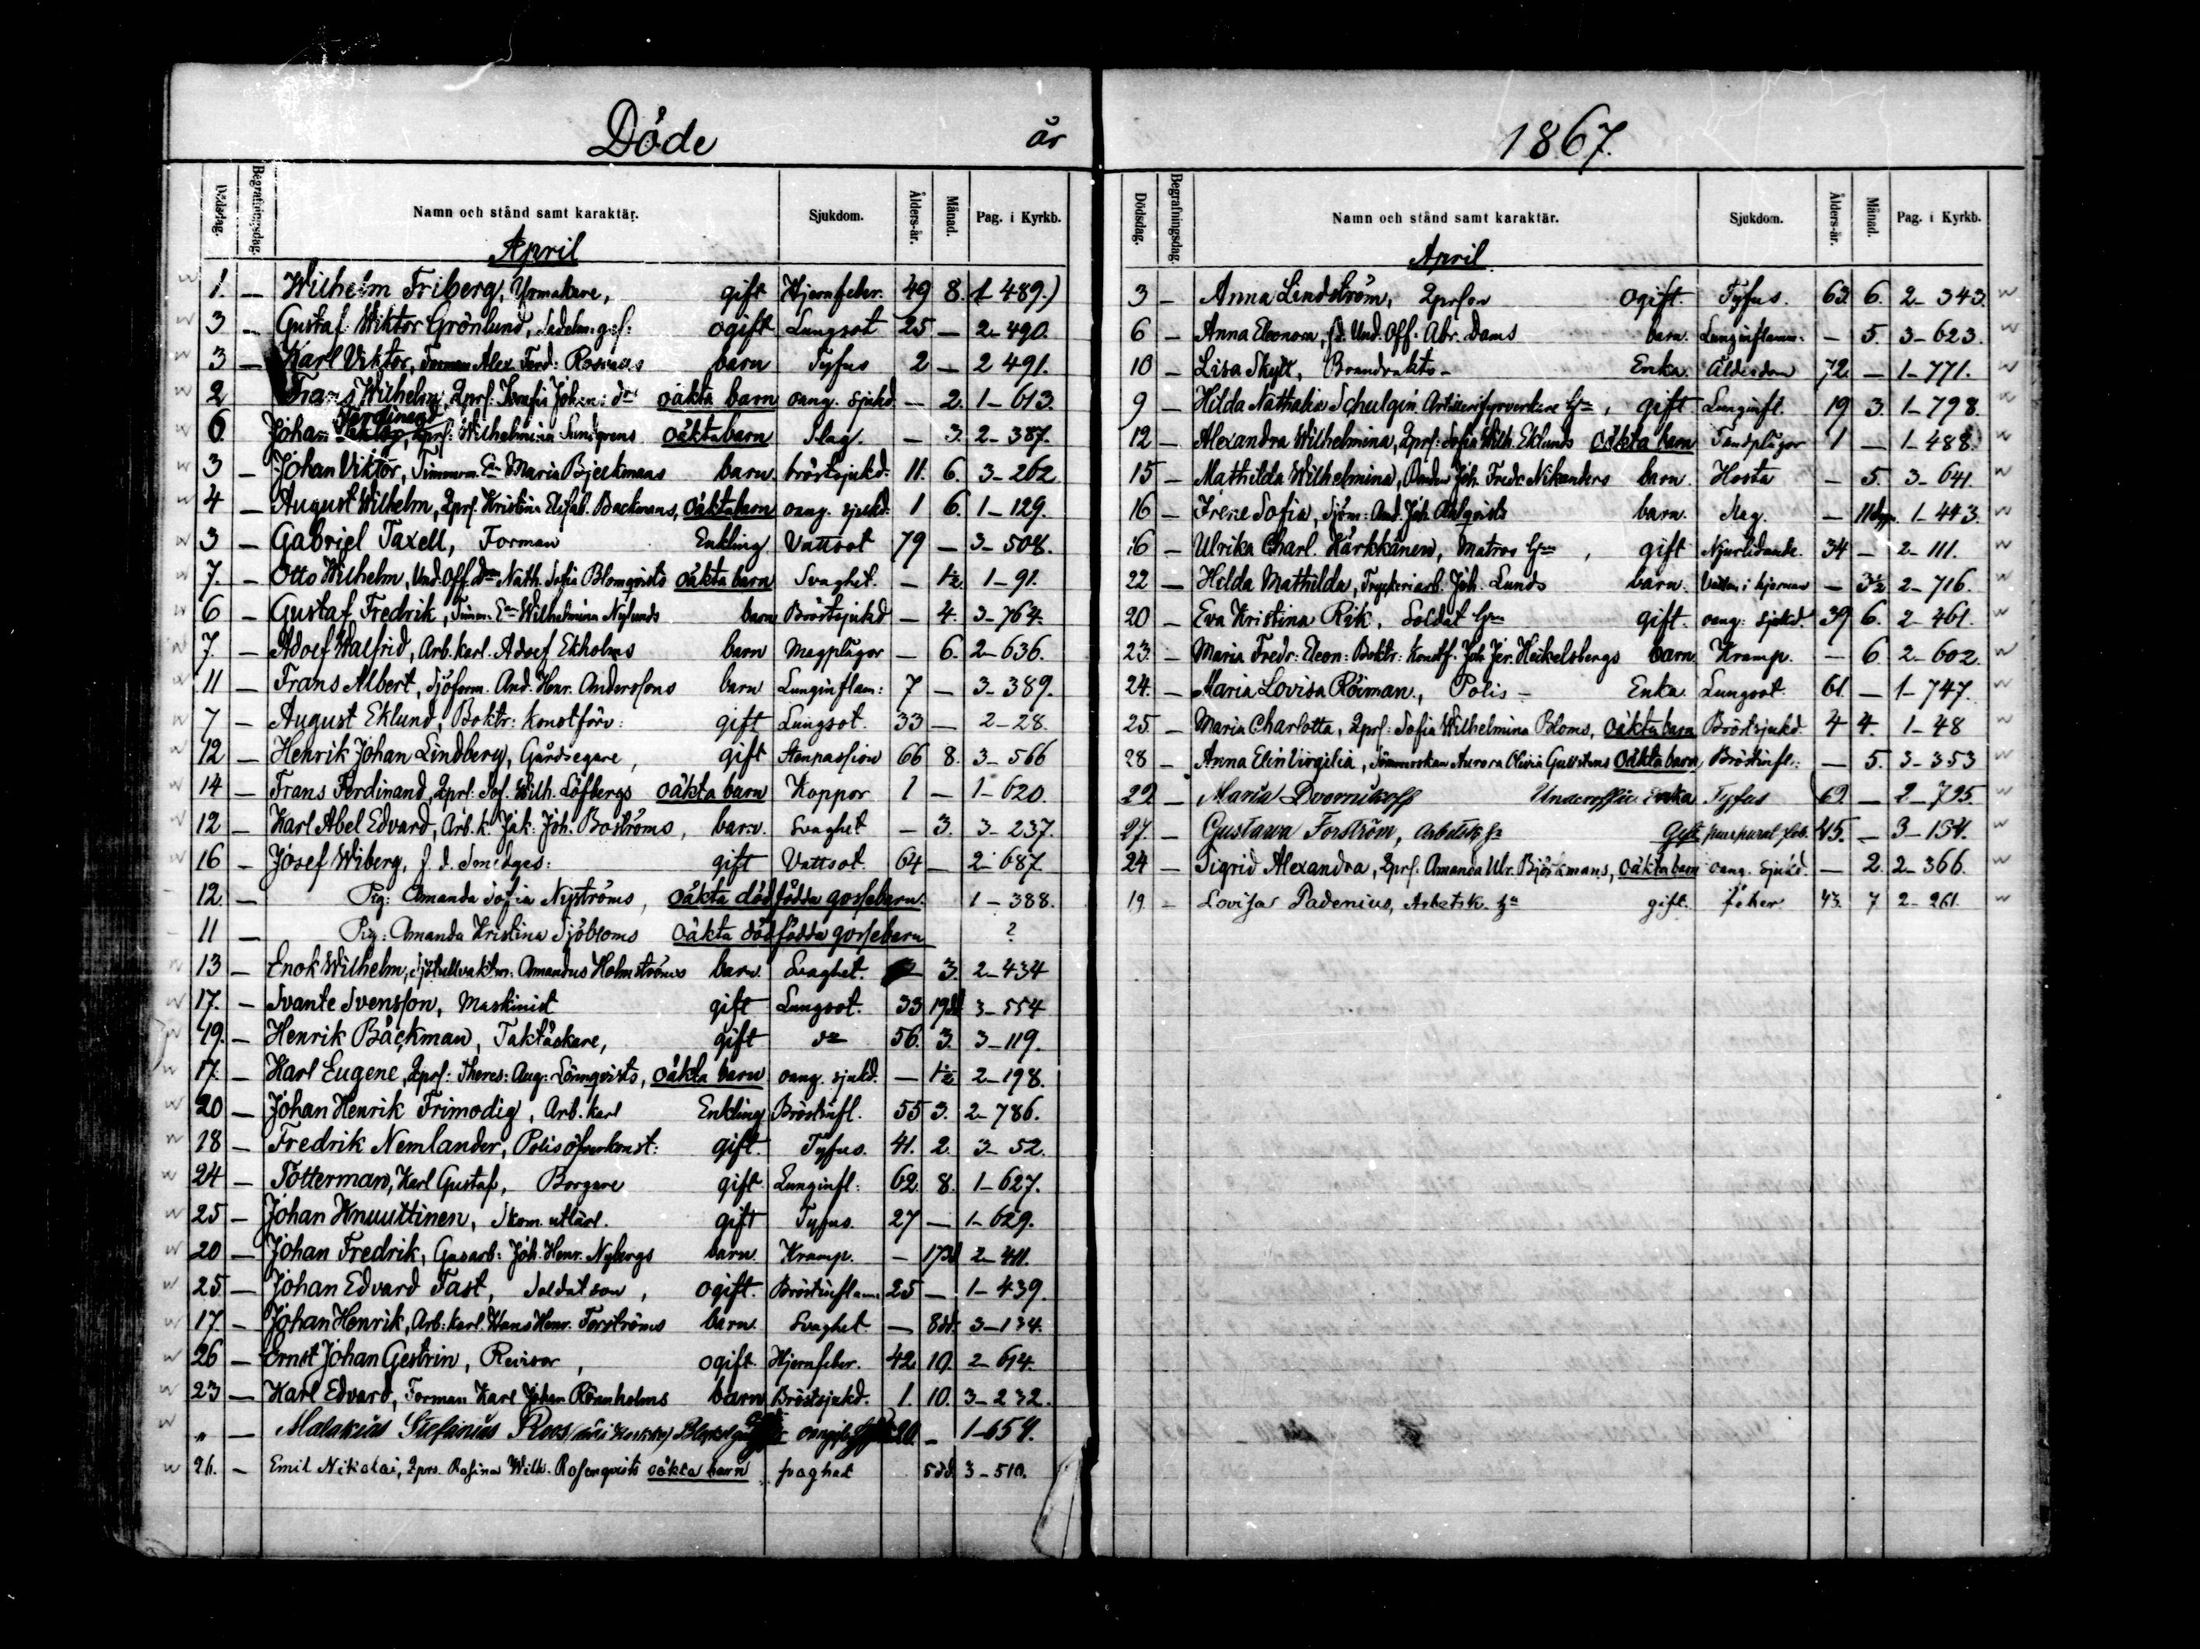 Döde år
Dödsdag. Begrafningsdag. Namn och stånd samt karaktär. Sjukdom. Ålders-år. Månad. Pag. i Kyrkb.
April
1. — Wilhelm Friberg, Urmakare, gift Hjernfeber. 49 8. 1 489.)
3 — Gustaf Wiktor Grönlund, Sadelm. ges: ogift Lungsot 25 — 2-490.
3 — Karl Viktor, Forman Alex. Ferd: barn Tyfus 2 — 2 491.
2 Frans Wilhelm, Qprs: Josefa Johan: drs oäkta barn oang. sjukd. — 2. 1-613.
6. Johan Ferdinand Qprs: Wilhelmina Sundgrens oäkta barn Slag. — 3. 2-387.
3 — Johan Viktor, Timmerm. Ea Maria Bjerkmans barn. bröstsjukd. 11. 6. 3-262
4 — August Wilhelm, Qprs. Kristina Elisab. Backmans, oäkta barn oang. sjukd. 1 6. 1-129.
3 — Gabriel Taxell, Forman Enkling Vattsot 79 — 3-508.
7. — Otto Wilhelm, Und. Off. Dr Nath. Sofia Blomqvists oäkta barn Svaghet. — 1½ 1-91.
6 — Gustaf Fredrik, Timm. Ea Wilhelmina Nylunds barn Bröstsjukd — 4. 3-764.
7. — Adolf Walfrid, Arb. karl. Adolf Ekholms barn Magplågor — 6. 2-636.
11 — Frans Albert, Sjöform. And. Henr. Anderssons barn Lunginflam: 7 — 3-389.
7 — August Eklund, Boktr: konstförv: gift Lungsot. 33 — 2-28.
12 — Henrik Johan Lindberg, Gårdsegare, gift Stenpassion 66 8. 3-566
14 — Frans Ferdinand, Qprs. Sof. Wilh. Löfbergs oäkta barn Koppor 1 — 1-620.
12 — Karl Abel Edvard, Arb. k. Jak: Joh. Boströms, barn. Svaghet — 3. 3-237.
16 — Josef Wiberg, f. d. Smedges: gift Vattsot. 64 — 2-687
12. — Pig: Amanda Sofia Nyströms, oäkta dödfödda gossebarn. 1-388.
11 — Pig: Amanda Kristina Sjöbloms oäkta dödfödda gossebarn ?
13 — Enok Wilhelm, Sjötullvaktm: Amandus Holmströms barn. Svaghet. 3. 2-434
17. — Svante Svensson, Maskinist gift Lungsot. 33 19dd 3-554
19. — Henrik Båckman, Taktäckare, gift do 56. 3. 3-119.
17. — Karl Eugene, Qprs: Theres: Aug: Lönnqvists, oäkta barn oang. sjukd. — 1½ 2-198.
20 — Johan Henrik Frimodig, Arb. karl Enkling Bröstinfl. 55 3. 2-786.
18 — Fredrik Nemlander, Polisöfverkonst: gift. Tyfus. 41. 2. 3-52.
24 — Totterman, Karl Gustaf, Borgare gift. Lunginfl: 62. 8. 1-627.
25 — Johan Knuuttinen, Skom. utlärl. gift Tyfus. 27 — 1-629.
20 — Johan Fredrik, Gasarb: Joh. Henr. Nybergs barn. Kramp. — 17dd 2-411.
25 — Johan Edvard Fast, Soldatson, ogift. Bröstinflam: 25 — 1-439.
17. — Johan Henrik, Arb: karl. Hans Henr. Forströms barn. Svaghet. — 8dd. 3-134.
26 — Ernst Johan Gestrin, Revisor, ogift. Hjernfeber. 42 10. 2-614.
23 — Karl Edvard, Forman Karl Johan Rönnholms barn Bröstsjukd. 1. 10. 3-232.
„ — Malakias Stefanus Roos 20. — 1-654.
26. — Emil Nikolai, Qprs. Rosina Wilh. Rosenqvists oäkta barn svaghet 5dd. 3-510.
1867.
Dödsdag. Begrafningsdag. Namn och stånd samt karaktär. Sjukdom. Ålders-år. Månad. Pag. i Kyrkb.
April.
3 — Anna Lindström, Qprson ogift. Tyfus. 63 6. 2-343.
6 — Anna Eleonora, fd. Und. Off. Abr. Dams barn. Lunginflamm: — 5. 3-623.
10 — Lisa Skytt, Brandvakts- Enka. Ålderdom 72. — 1-771.
9 — Hilda Nathalia Schulgin. Artillerifyrverkare Hu, gift Lunginfl. 19 3. 1-798.
12 — Alexandra Wilhelmina, Qprs: Sofia Wilh. Eklunds oäkta barn Tandplågor 1 — 1-488.
15 — Mathilda Wilhelmina, Joh. Fredr. Nikanders barn Hosta — 5. 3-641.
16 — Irene Sofia, Sjöm: And. Joh. Ahlqvists barn. Slag. — 11dgr. 1-443.
16 — Ulrika Charl. Kärkkänen, Matros Hu, gift Njurlidande. 34 — 2-111.
22 — Hilda Mathilda, Tryckeriarb. Joh. Lunds barn. Vatten i hjernan — 3½ 2-716.
20 — Eva Kristina Rik, Soldat Hu gift. oang: sjukd. 39 6. 2-461.
23. — Maria Fredr: Eleon: Boktr: konstf. Joh. Jer. Heikelsbergs barn Kramp. — 6 2-602
24. — Maria Lovisa Röiman., Polis- Enka Lungsot. 61. — 1-747.
25. — Maria Charlotta, Qprs: Sofia Wilhelmina Bloms, oäkta barn Bröstsjukd. 4 4. 1-48
28 — Anna Elin Virgilia, Sömmerskan Aurora Olivia oäkta barn Bröstinfl: — 5. 3-353
29. — Maria Dvornikoff Underoffic. Enka Tyfus 69. — 2-795.
27. — Gustava Forström, Arbetsk. Hu Gift. puerperal feb. 45. — 3-154.
24 — Sigrid Alexandra, Qprs. Amanda Ulr. Björkmans, oäkta barn oang. sjukd. — 2. 2-366.
19. — Lovisa Padenius, Arbetsk. Hu gift. feber. 43. 7 2-261.